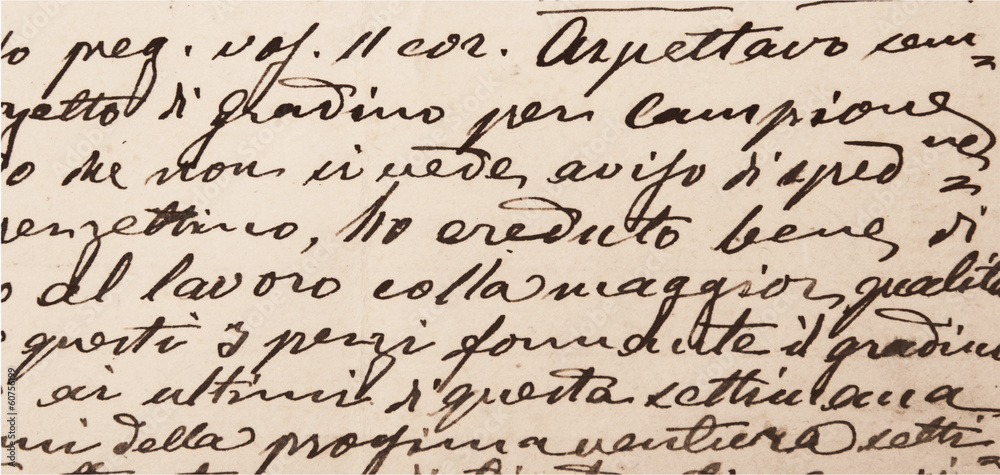 lo preg. vos. 11 cor. Aspettavo sem=
getto di gradino per campione
o che non si vede aviso di sped ne=
penzettino, ho creduto bene di
o al lavoro colla maggior qualità
questi 3 pezzi formante il gradino
ai ultimi di questa settimana
ni della prossima ventura setti=